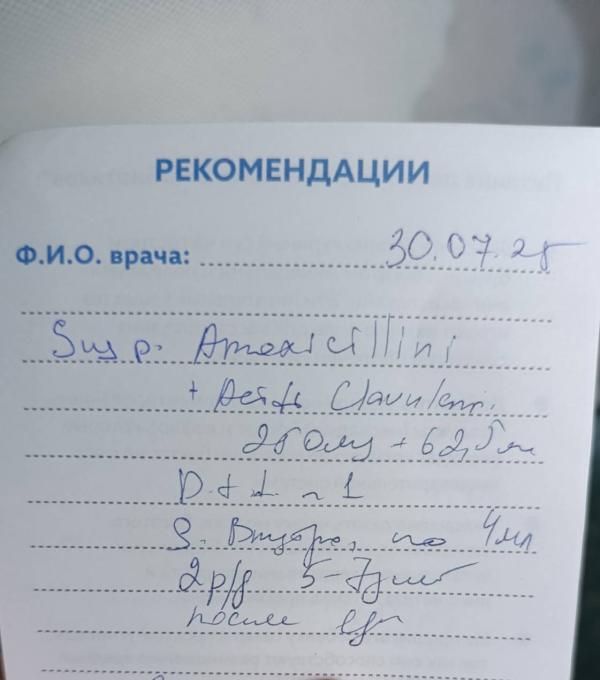 РЕКОМЕНДАЦИИ
Ф.И.О. врача: 30.07.25
Susp. Amoxicillini
+ Acidi Clavulani.
250мг + 62,5 мг
D.t.d. N 1
S. Внутрь, по 4мл
2р/д 5-7дней
после еды